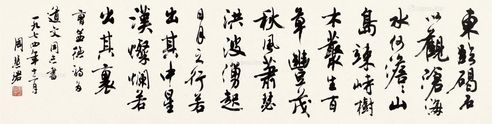 東臨碣石
以觀滄海
水何澹澹山
島竦峙樹
木叢生百
草豐茂
秋風蕭瑟
洪波湧起
日月之行若
出其中星
漢燦爛若
出其裏
孟德詩为
道文同志書
一九七四年十二月
周慧珺